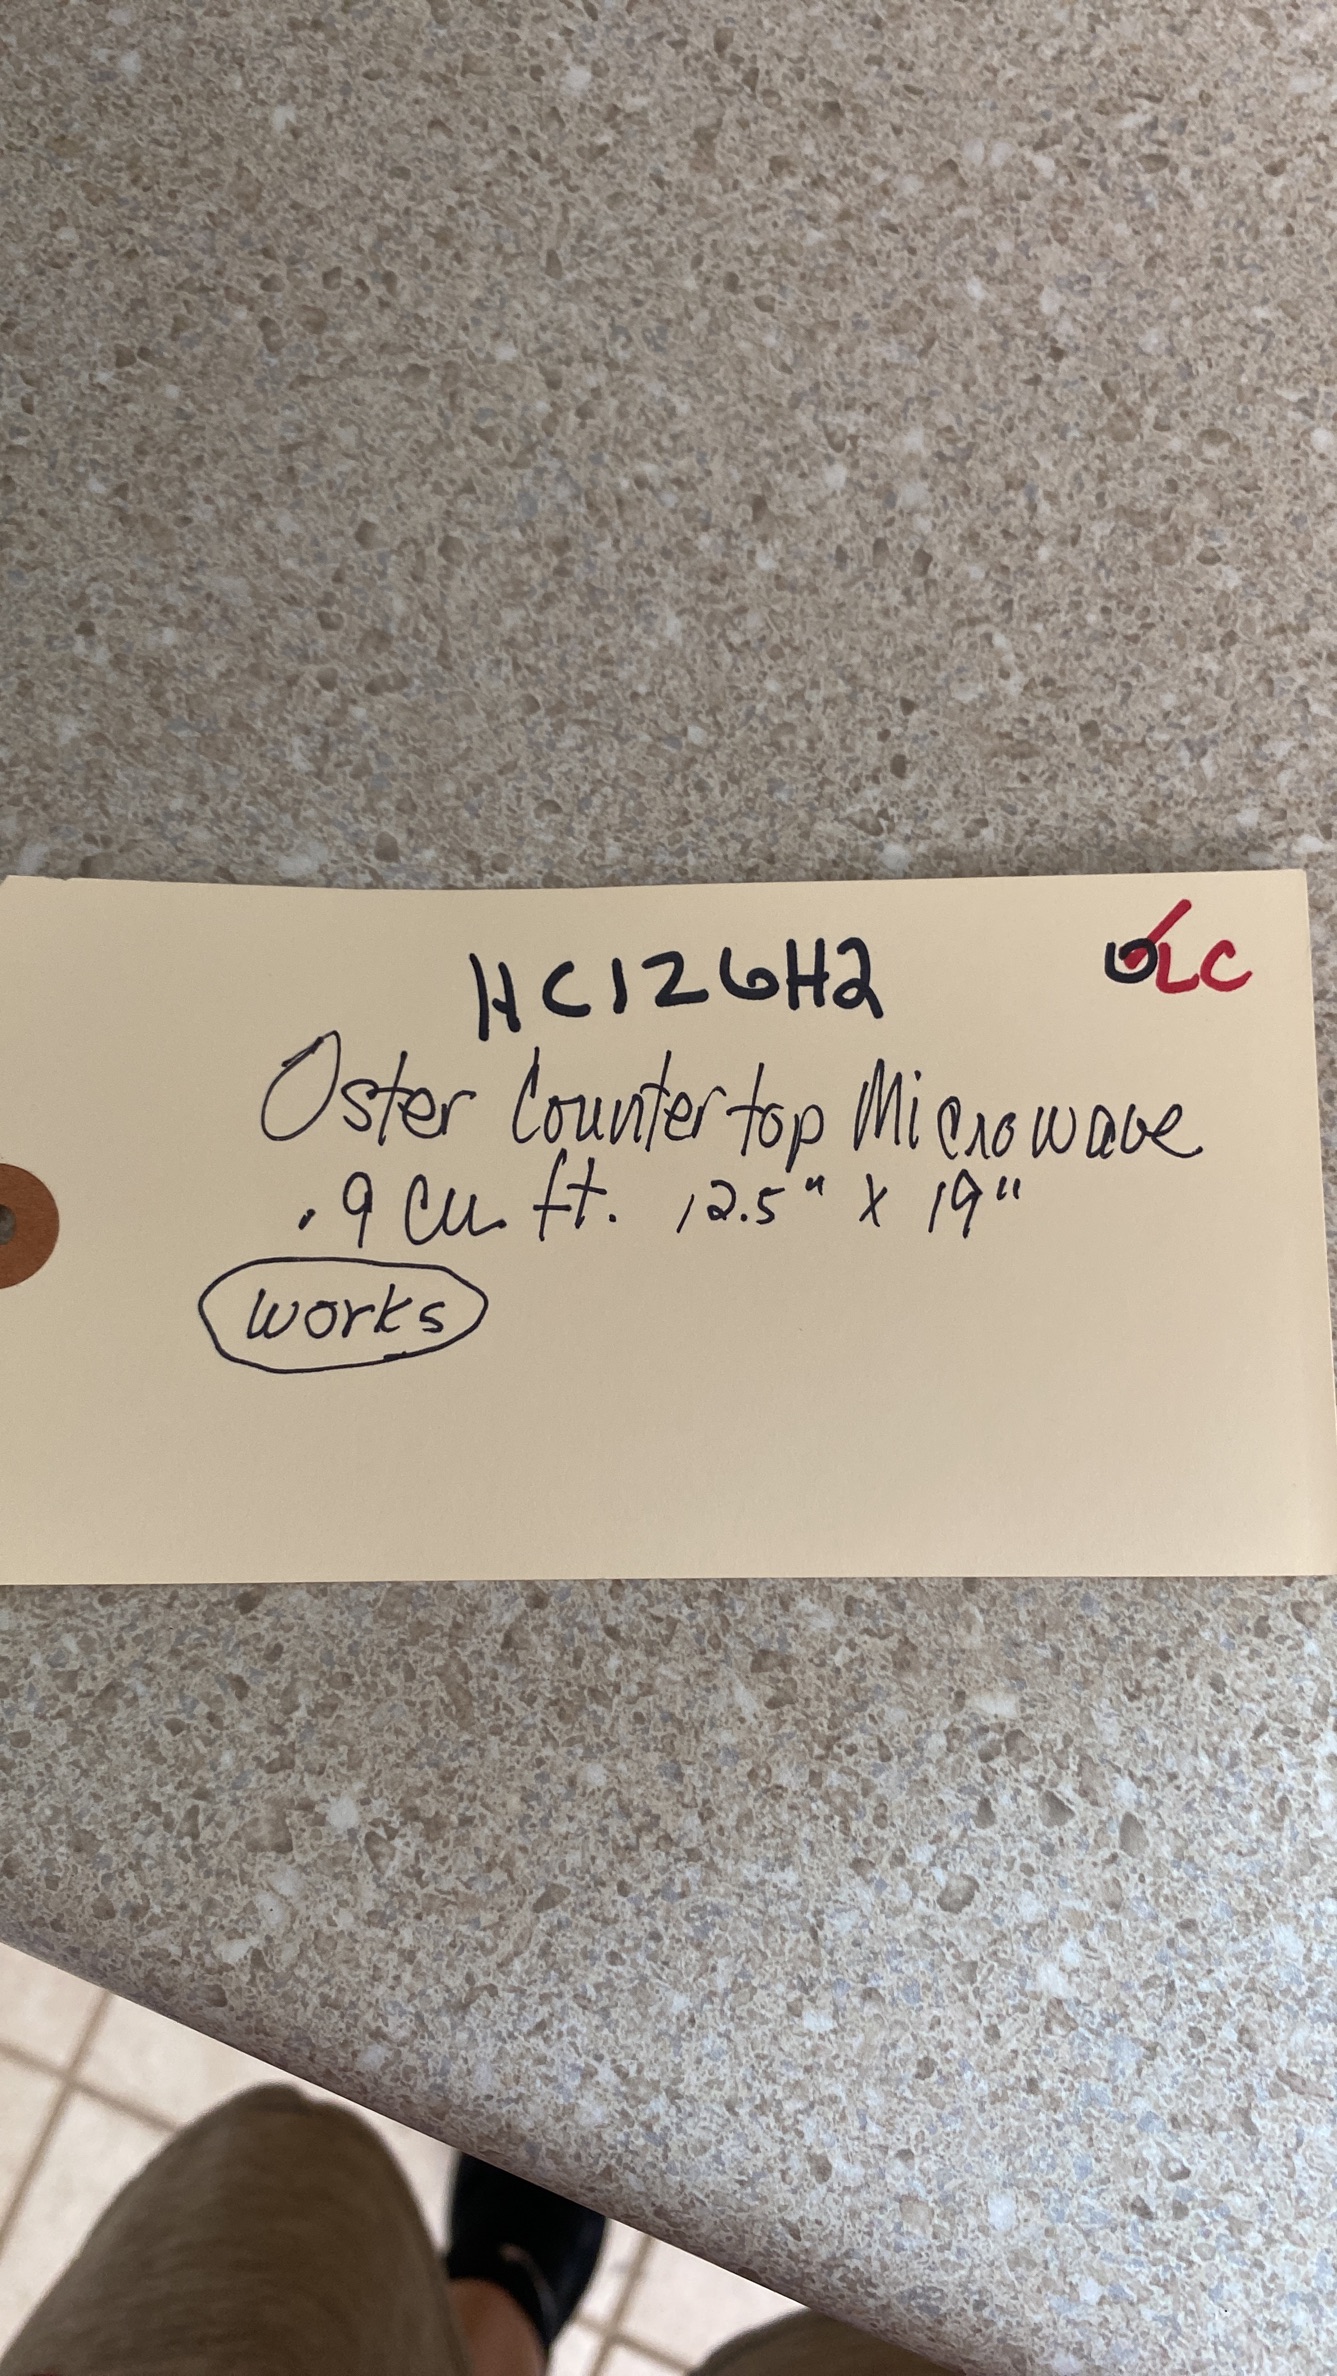 HC126H2
Oster Countertop Microwave
.9 cu. ft. 12.5" x 19"
works